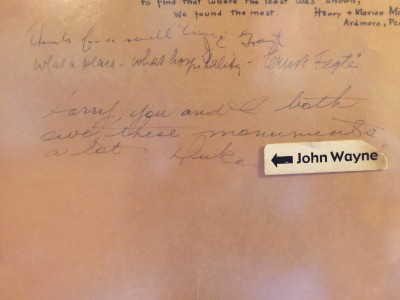 to find that where the least was known,
We found the most. Henry + Marion Mi
Ardmore, Pe
Thanks for a swell
What a place - what hospitality -
Harry, you and I both
owe these monuments
a lot Duke
John Wayne